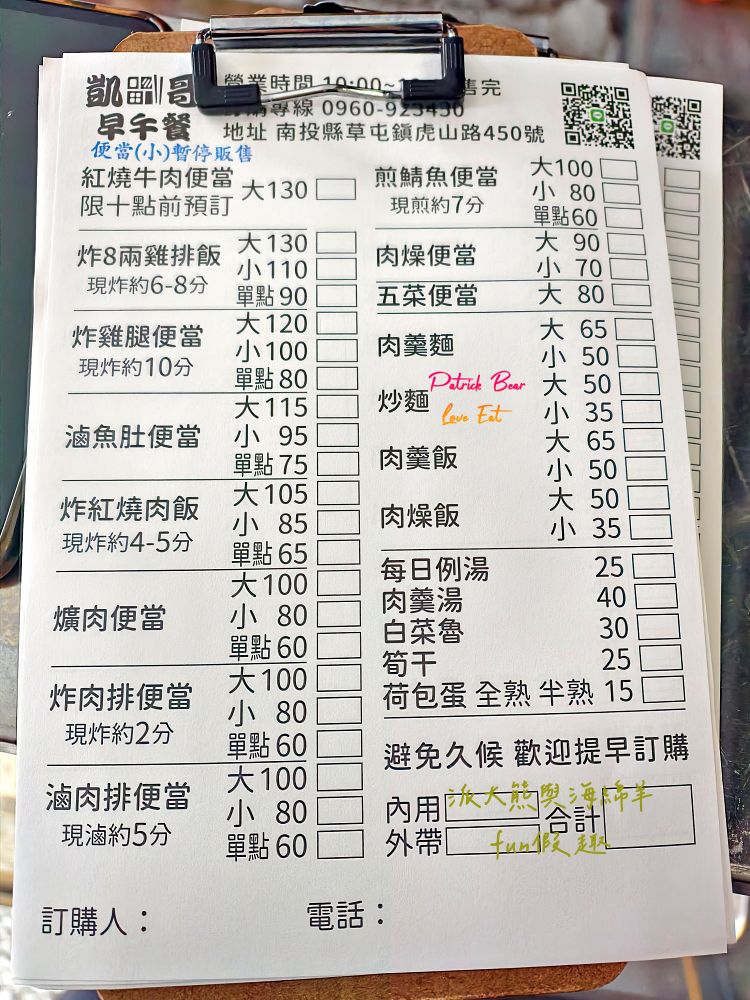 凱 哥
早午餐
營業時間 10:00~ 售完
訂購專線 0960-923430
地址 南投縣草屯鎮虎山路450號
便當(小)暫停販售
紅燒牛肉便當 大130
限十點前預訂
炸8兩雞排飯 大130
現炸約6-8分 小110
單點90
炸雞腿便當 大120
現炸約10分 小100
單點80
滷魚肚便當 大115
小 95
單點75
炸紅燒肉飯 大105
現炸約4-5分 小 85
單點65
爌肉便當 大100
小 80
單點60
炸肉排便當 大100
現炸約2分 小 80
單點60
滷肉排便當 大100
現滷約5分 小 80
單點60
煎鯖魚便當 大100
現煎約7分 小 80
單點60
肉燥便當 大 90
小 70
五菜便當 大 80
肉羹麵 大 65
小 50
炒麵 大 50
小 35
Patrick Bear
Love Eat
肉羹飯 大 65
小 50
肉燥飯 大 50
小 35
每日例湯 25
肉羹湯 40
白菜魯 30
筍干 25
荷包蛋 全熟 半熟 15
避免久候 歡迎提早訂購
內用 合計
外帶
派大熊與海綿羊
fun假趣
訂購人： 電話：